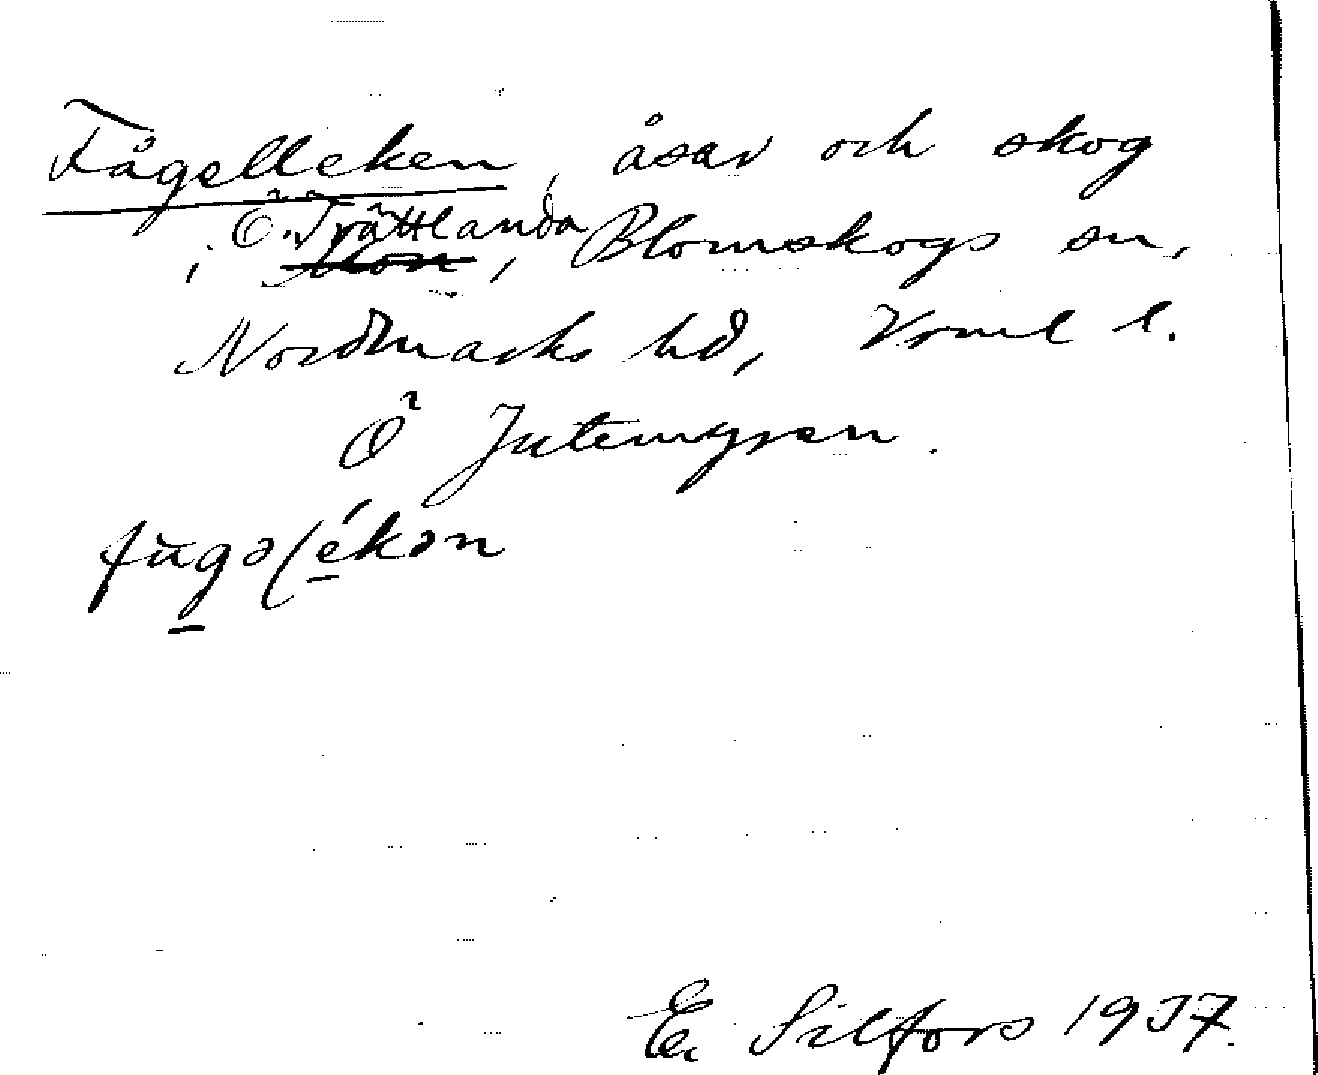 Fågelleken, åsar och skog
i Ö. Trättlanda, Blomskogs sn,
Nordmarks hd, Vrml l.
Ö Jutemyren.
fùgəlékən
E. Silfors 1937.